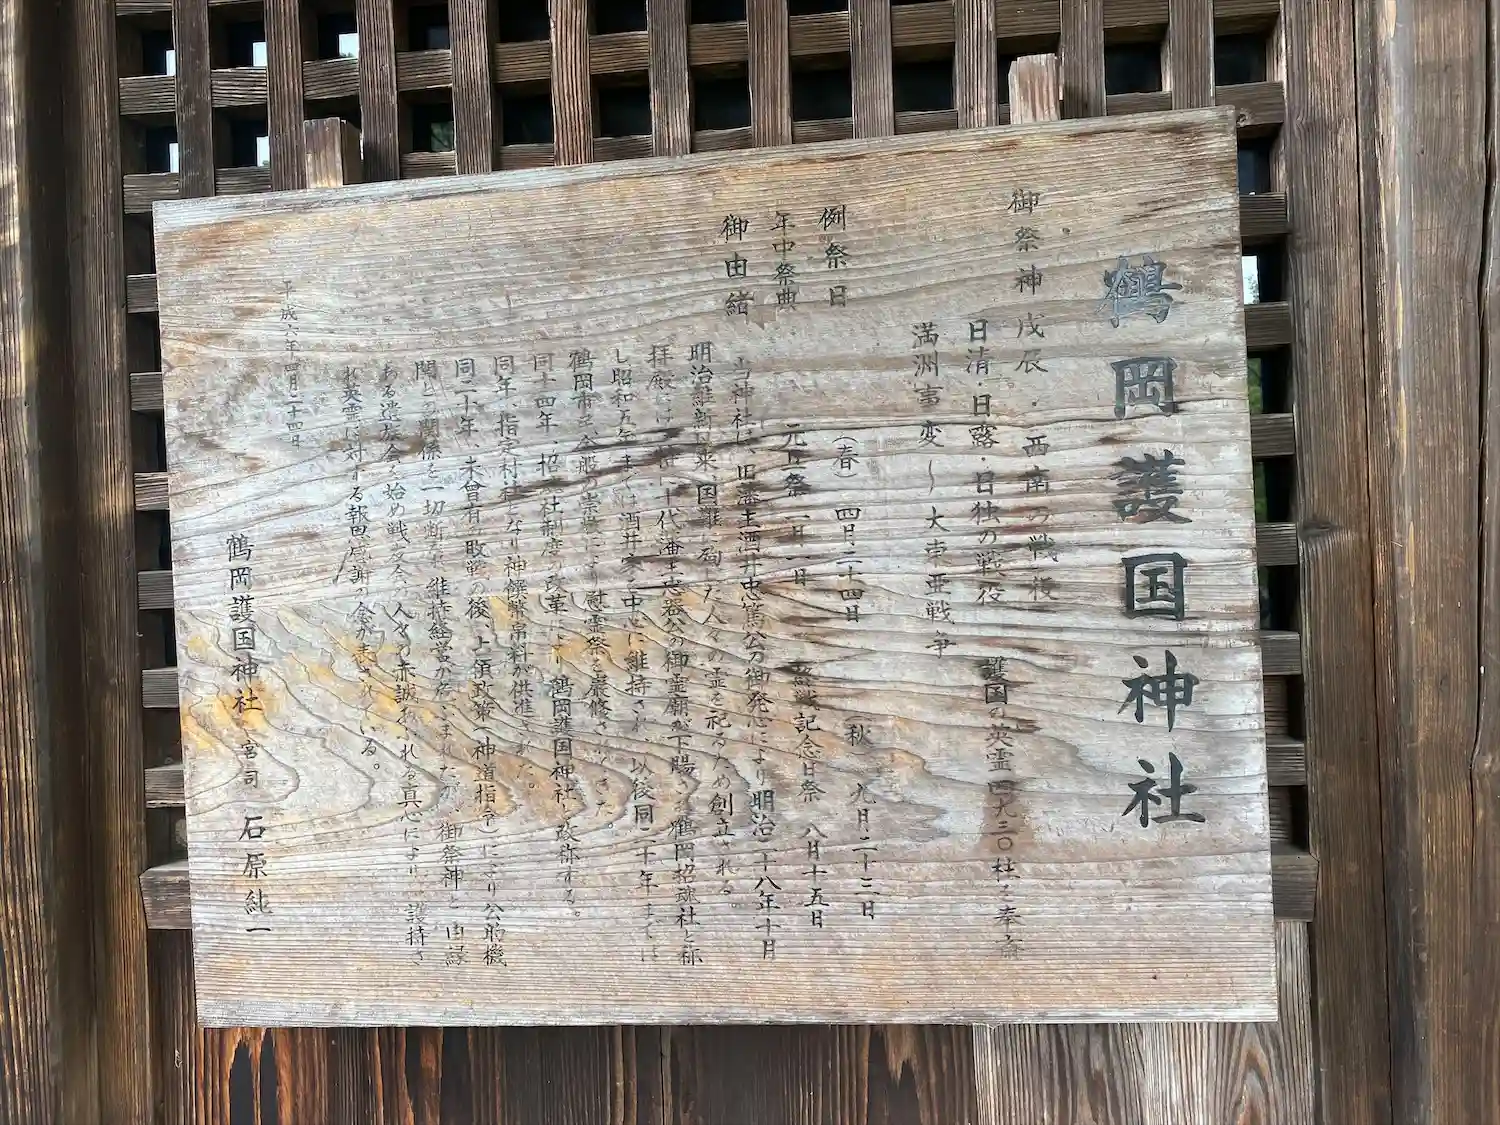 鶴岡護国神社
御祭神 戊辰・西南の戦役
日清・日露・日独の戦役 護国の英霊一四九三〇社を奉斎
満洲事変〜大東亜戦争
例祭日 (春) 四月二十四日 (秋) 九月二十三日
年中祭典 元旦祭 一月一日 終戦記念日祭 八月十五日
御由緒 当神社は、旧藩主酒井忠篤公の御発心により明治二十八年十月
明治維新以来、国難に殉じた人々の霊を祀るため創立される。
拝殿には 代藩主忠器公の御霊廟が下賜 鶴岡招魂社と称
し昭和五年までは酒井家を中心に維持され 以後同二十年までは
鶴岡市 全般の崇敬により慰霊祭を厳修されてきた。
同十四年、招魂社制度の改革により鶴岡護国神社と改称する。
同年、指定村社となり神饌幣帛料が供進された。
同二十年、未曾有の敗戦の後、占領政策(神道指令)により公的機
関との関係を一切断たれ 維持経営が危ぶまれたが、御祭神と由縁
ある遺族会を始め戦友会の人々の赤誠あふれる真心により、護持さ
れ英霊に対する報恩感謝の念が表されている。
平成六年四月二十四日
鶴岡護国神社 宮司 石原純一